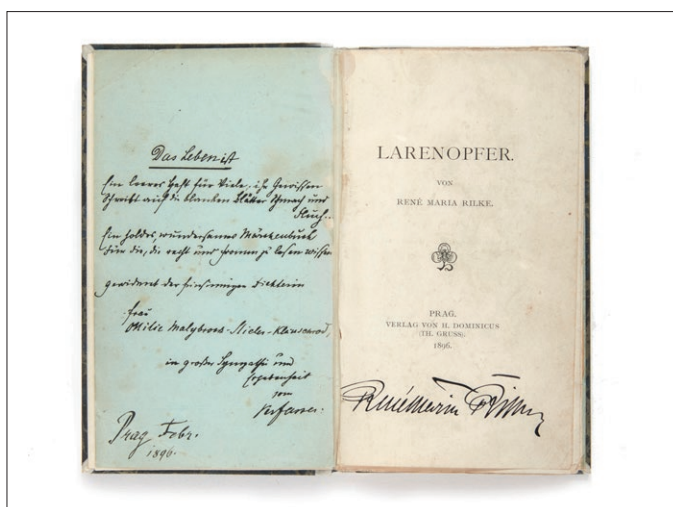 Das Leben ist
Ein leeres Heft für Viele. ihr Gewissen
Schreibt auf die blanken Blätter Schmach und
Fluch..
Ein holdes, wundersames Märchenbuch
Für die, die recht und fromm zu lesen wissen
gewidmet der feinsinnigen Dichterin
Frau
Ottilie Malybrock-Stieler-
in großer Sympathie und
Ergebenheit
vom
Verfasser.
Prag Febr.
1896.
LARENOPFER.
VON
RENÉ MARIA RILKE.
PRAG.
VERLAG VON H. DOMINICUS
(TH. GRUSS).
1896.
RenéMaria Rilke